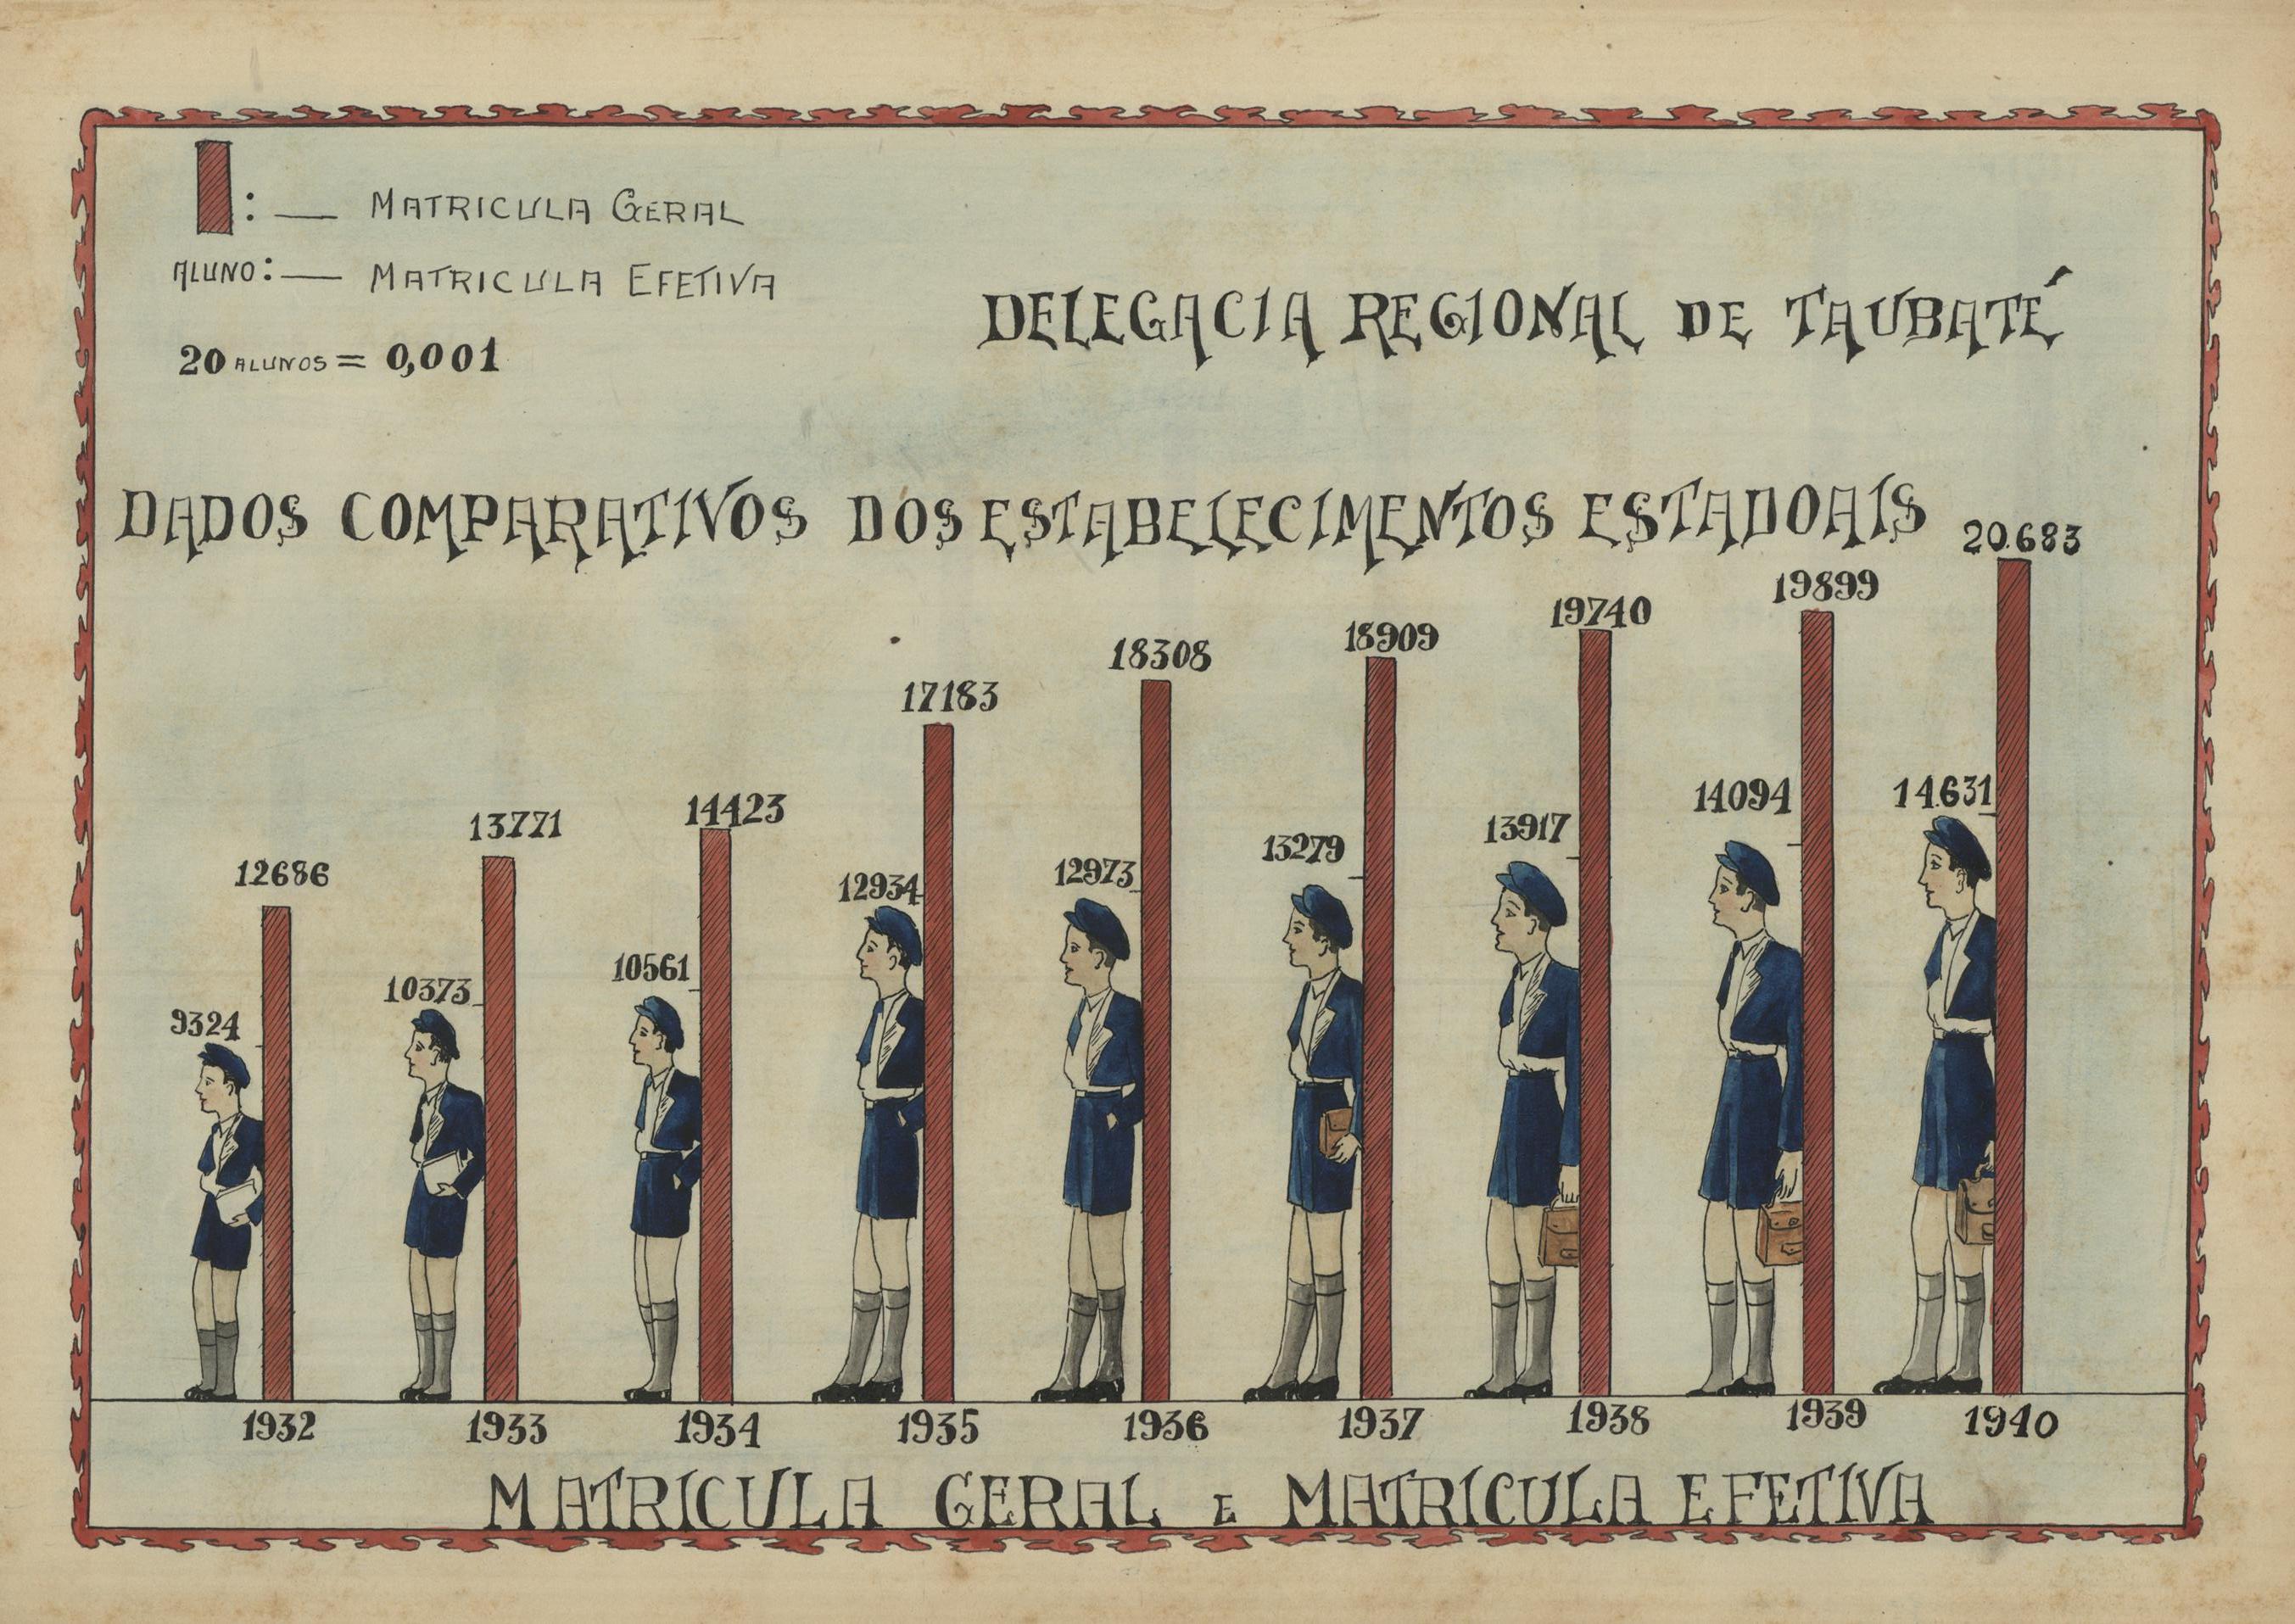 : — MATRICULA GERAL
ALUNO: — MATRICULA EFETIVA
20 ALUNOS = 0,001
DELEGACIA REGIONAL DE TAUBATÉ
DADOS COMPARATIVOS DOS ESTABELECIMENTOS ESTADOAIS
9324 12686
10373 13771
10561 14423
12934 17183
12973 18308
13279 18909
13917 19740
14094 19899
14.631 20.683
1932 1933 1934 1935 1936 1937 1938 1939 1940
MATRICULA GERAL E MATRICULA EFETIVA